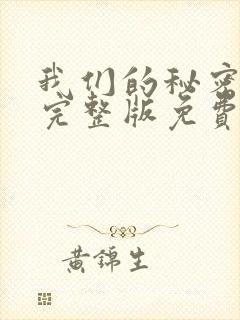 我们的秘密
完整版免費
黄锦生